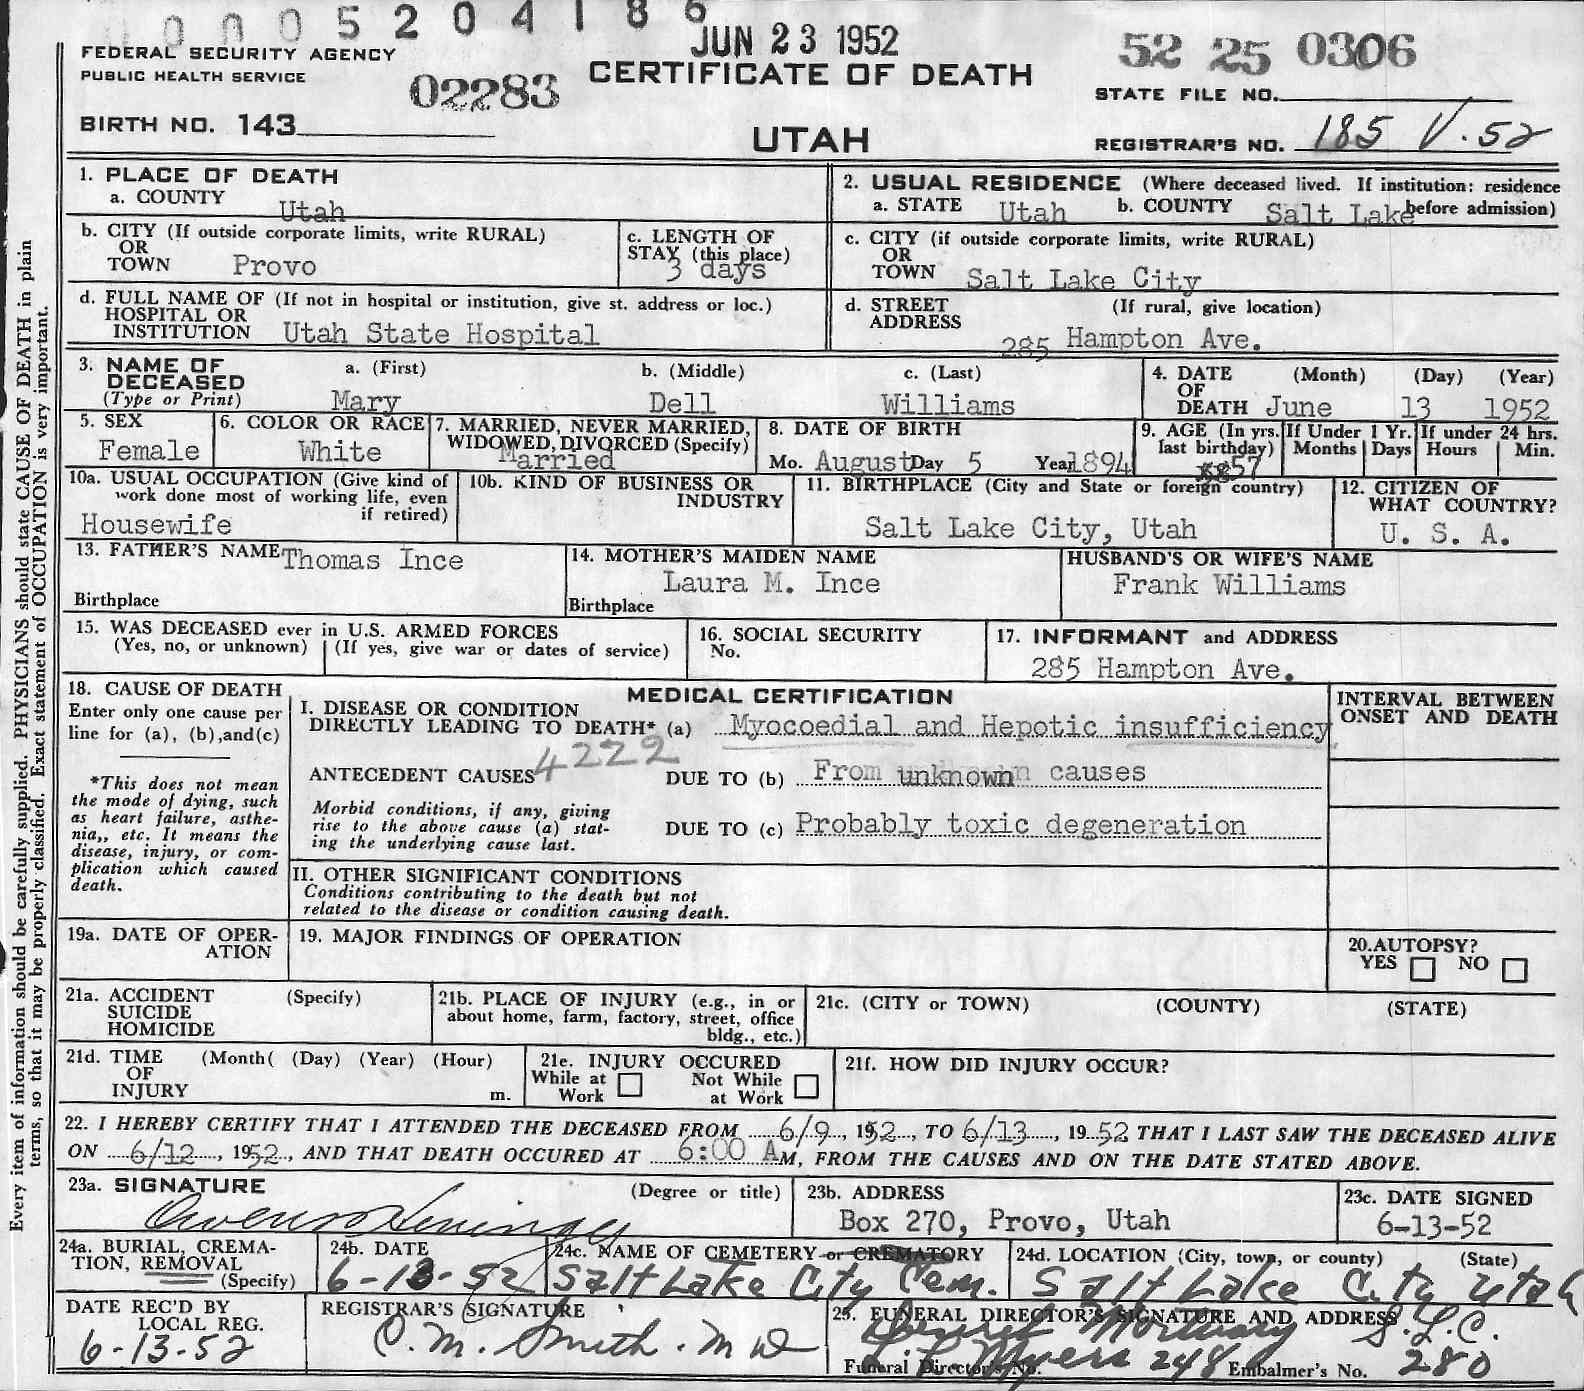 0005204186
JUN 23 1952
FEDERAL SECURITY AGENCY
PUBLIC HEALTH SERVICE
02283
CERTIFICATE OF DEATH
52 25 0306
STATE FILE NO.
BIRTH NO. 143
UTAH
REGISTRAR'S NO. 185 V. 52
Every item of information should be carefully supplied. PHYSICIANS should state CAUSE OF DEATH in plain
terms, so that it may be properly classified. Exact statement of OCCUPATION is very important.
1. PLACE OF DEATH
a. COUNTY Utah
2. USUAL RESIDENCE (Where deceased lived. If institution: residence
a. STATE Utah b. COUNTY Salt Lake before admission)
b. CITY (If outside corporate limits, write RURAL)
OR
TOWN Provo
c. LENGTH OF
STAY (this place)
3 days
c. CITY (if outside corporate limits, write RURAL)
OR
TOWN Salt Lake City
d. FULL NAME OF (If not in hospital or institution, give st. address or loc.)
HOSPITAL OR
INSTITUTION Utah State Hospital
d. STREET (If rural, give location)
ADDRESS
285 Hampton Ave.
3. NAME OF
DECEASED
(Type or Print)
a. (First) b. (Middle) c. (Last)
Mary Dell Williams
4. DATE (Month) (Day) (Year)
OF
DEATH June 13 1952
5. SEX
Female
6. COLOR OR RACE
White
7. MARRIED, NEVER MARRIED,
WIDOWED, DIVORCED (Specify)
Married
8. DATE OF BIRTH
Mo. August Day 5 Year 1894
9. AGE (In yrs.
last birthday)
57
If Under 1 Yr.
Months Days
If under 24 hrs.
Hours Min.
10a. USUAL OCCUPATION (Give kind of
work done most of working life, even
if retired)
Housewife
10b. KIND OF BUSINESS OR
INDUSTRY
11. BIRTHPLACE (City and State or foreign country)
Salt Lake City, Utah
12. CITIZEN OF
WHAT COUNTRY?
U. S. A.
13. FATHER'S NAME Thomas Ince
Birthplace
14. MOTHER'S MAIDEN NAME
Laura M. Ince
Birthplace
HUSBAND'S OR WIFE'S NAME
Frank Williams
15. WAS DECEASED ever in U.S. ARMED FORCES
(Yes, no, or unknown) (If yes, give war or dates of service)
16. SOCIAL SECURITY
No.
17. INFORMANT and ADDRESS
285 Hampton Ave.
18. CAUSE OF DEATH
Enter only one cause per
line for (a), (b),and(c)
*This does not mean
the mode of dying, such
as heart failure, asthe-
nia,, etc. It means the
disease, injury, or com-
plication which caused
death.
MEDICAL CERTIFICATION
I. DISEASE OR CONDITION
DIRECTLY LEADING TO DEATH* (a) Myocoedial and Hepotic insufficiency
4222
ANTECEDENT CAUSES DUE TO (b) From unknown causes
Morbid conditions, if any, giving
rise to the above cause (a) stat-
ing the underlying cause last.
DUE TO (c) Probably toxic degeneration
II. OTHER SIGNIFICANT CONDITIONS
Conditions contributing to the death but not
related to the disease or condition causing death.
INTERVAL BETWEEN
ONSET AND DEATH
19a. DATE OF OPER-
ATION
19. MAJOR FINDINGS OF OPERATION
20.AUTOPSY?
YES NO
21a. ACCIDENT (Specify)
SUICIDE
HOMICIDE
21b. PLACE OF INJURY (e.g., in or
about home, farm, factory, street, office
bldg., etc.)
21c. (CITY or TOWN) (COUNTY) (STATE)
21d. TIME (Month( (Day) (Year) (Hour)
OF
INJURY m.
21e. INJURY OCCURED
While at Work Not While at Work
21f. HOW DID INJURY OCCUR?
22. I HEREBY CERTIFY THAT I ATTENDED THE DECEASED FROM 6/9, 1952, TO 6/13, 1952 THAT I LAST SAW THE DECEASED ALIVE
ON 6/12, 1952, AND THAT DEATH OCCURED AT 6:00 AM, FROM THE CAUSES AND ON THE DATE STATED ABOVE.
23a. SIGNATURE (Degree or title)
23b. ADDRESS
Box 270, Provo, Utah
23c. DATE SIGNED
6-13-52
24a. BURIAL, CREMA-
TION, REMOVAL
(Specify)
24b. DATE
6-13-52
24c. NAME OF CEMETERY or CREMATORY
Salt Lake City Cem.
24d. LOCATION (City, town, or county) (State)
Salt Lake City Utah
DATE REC'D BY
LOCAL REG.
6-13-52
REGISTRAR'S SIGNATURE
C. M. Smith. M D
25. FUNERAL DIRECTOR'S SIGNATURE AND ADDRESS
Deseret Mortuary S.L.C.
Myers 248 280
Funeral Director's No. Embalmer's No.